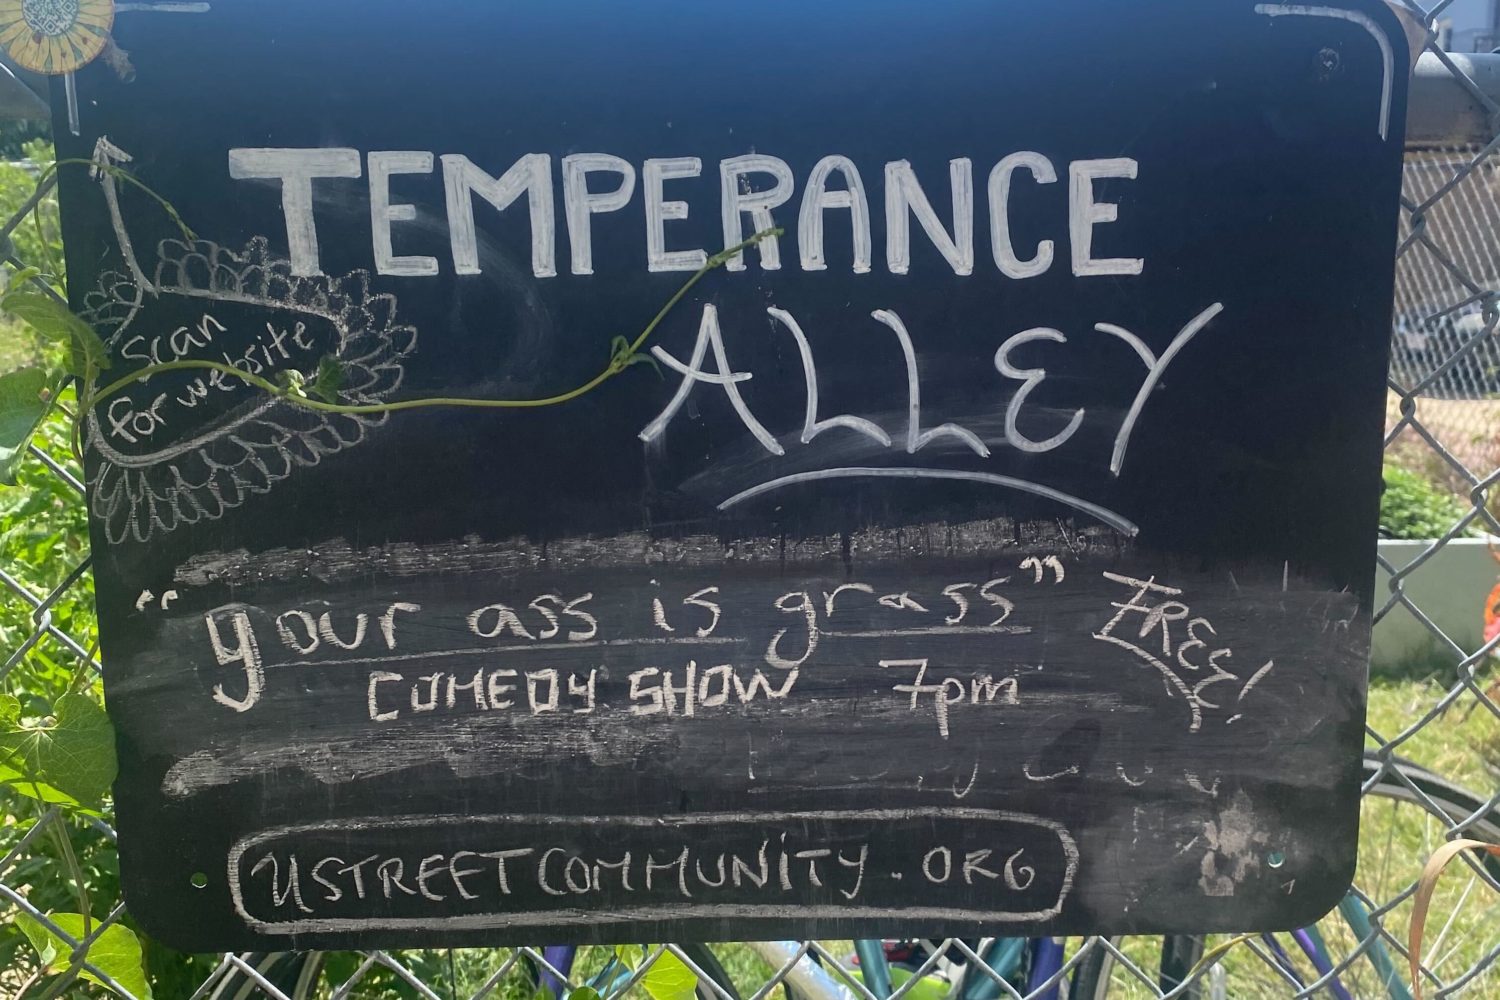 TEMPERANCE
ALLEY
Scan
for website
"your ass is grass"
FREE!
COMEDY SHOW 7pm
USTREETCOMMUNITY.ORG